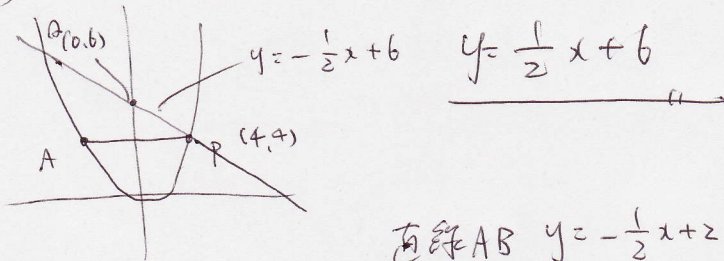 Q (0,6)
y = -1/2 x + 6
y = 1/2 x + 6
A
P (4,4)
直線AB y = -1/2 x + 2